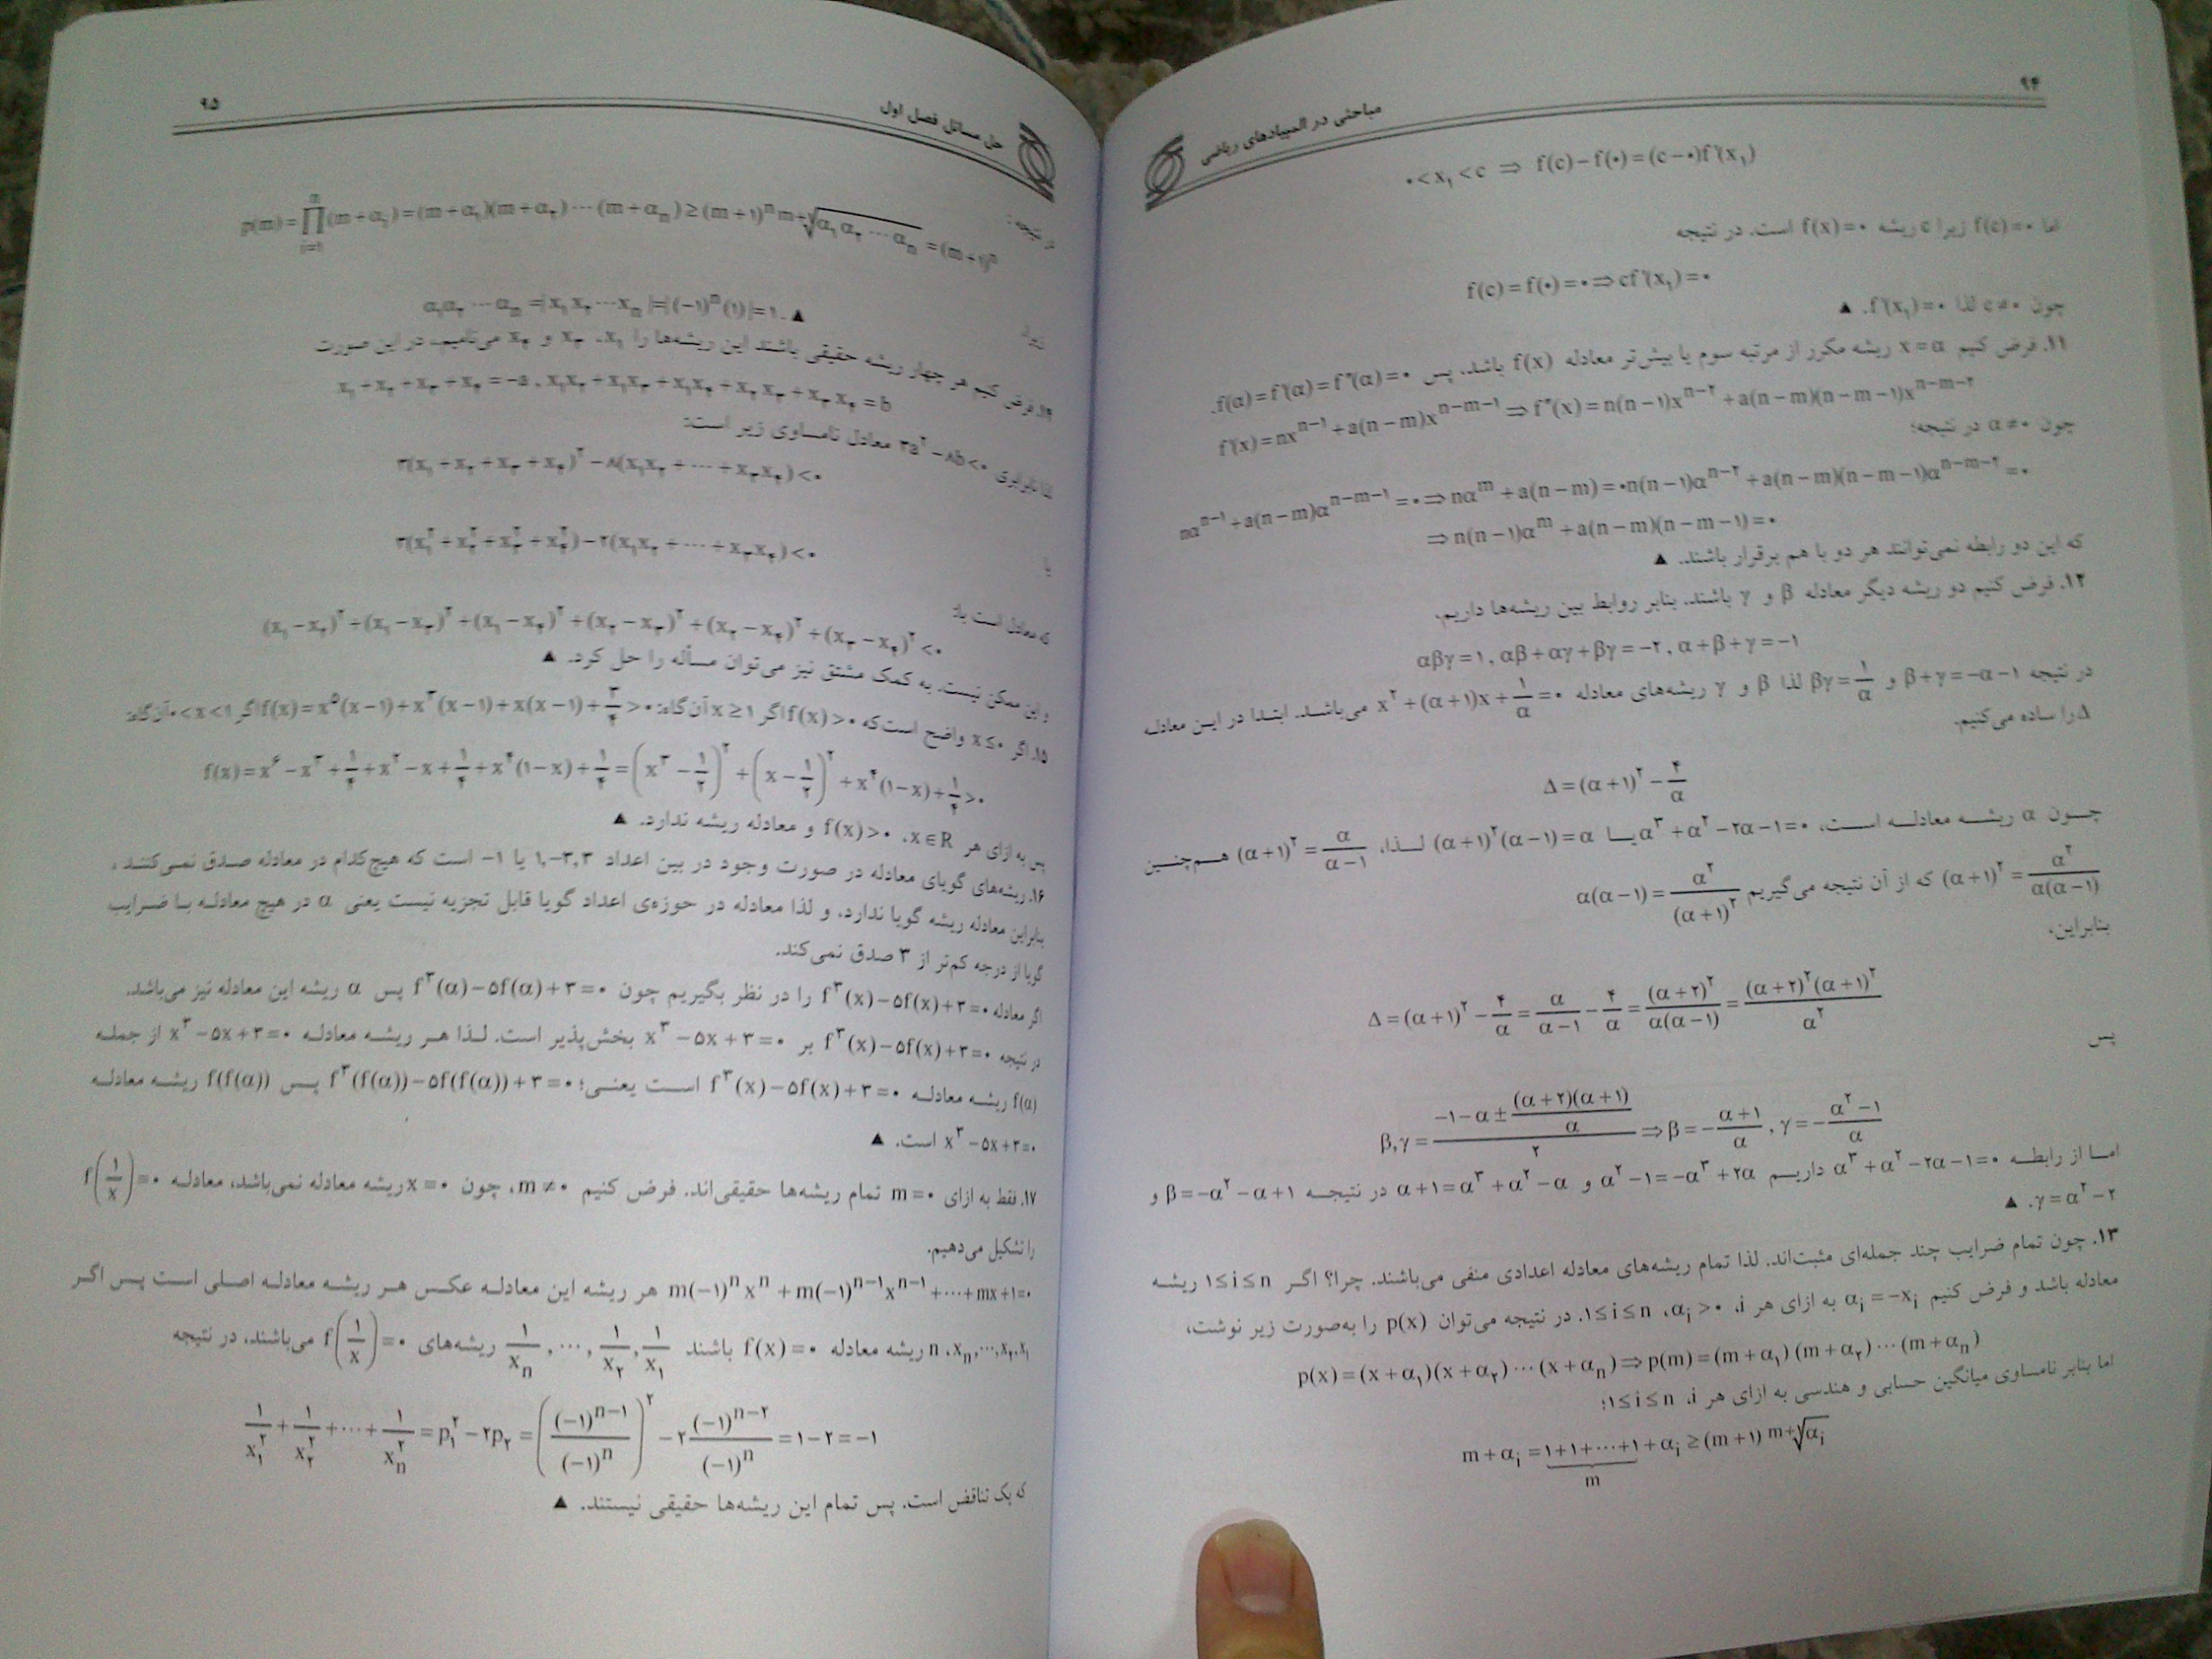 ۹۴
مباحثی در المپیادهای ریاضی
۰<x₁<c ⇒ f(c)−f(۰)=(c−۰)f'(x₁)
اما f(c)=۰ زیرا c ریشه f(x)=۰ است. در نتیجه
f(c)=f(۰)=۰⇒cf'(x₁)=۰
چون c≠۰ لذا f'(x₁)=۰. ▲
۱۱. فرض کنیم x=α ریشه مکرر از مرتبه سوم یا بیش‌تر معادله f(x) باشد، پس f(α)=f'(α)=f''(α)=۰.
f'(x)=nxⁿ⁻¹+a(n−m)xⁿ⁻ᵐ⁻¹⇒f''(x)=n(n−۱)xⁿ⁻²+a(n−m)(n−m−۱)xⁿ⁻ᵐ⁻²
چون α≠۰ در نتیجه؛
nαⁿ⁻¹+a(n−m)αⁿ⁻ᵐ⁻¹=۰⇒nαᵐ+a(n−m)=۰n(n−۱)αⁿ⁻²+a(n−m)(n−m−۱)αⁿ⁻ᵐ⁻²=۰
⇒n(n−۱)αᵐ+a(n−m)(n−m−۱)=۰
که این دو رابطه نمی‌توانند هر دو با هم برقرار باشند. ▲
۱۲. فرض کنیم دو ریشه دیگر معادله β و γ باشند. بنابر روابط بین ریشه‌ها داریم،
αβγ=۱, αβ+αγ+βγ=−۲, α+β+γ=−۱
در نتیجه β+γ=−α−۱ و βγ=۱/α لذا β و γ ریشه‌های معادله x²+(α+۱)x+۱/α=۰ می‌باشد. ابتدا در این معادله
Δ را ساده می‌کنیم.
Δ=(α+۱)²−۴/α
چون α ریشه معادله است، α³+α²−۲α−۱=۰ یا (α+۱)²(α−۱)=α لذا، (α+۱)²=α/(α−۱) هم‌چنین
(α+۱)²=α²/(α(α−۱)) که از آن نتیجه می‌گیریم α(α−۱)=α²/(α+۱)²
بنابراین،
Δ=(α+۱)²−۴/α=α/(α−۱)−۴/α=(α+۲)²/(α(α−۱))=(α+۲)²(α+۱)²/α²
پس
β,γ=(−۱−α±(α+۲)(α+۱)/α)/۲⇒β=−(α+۱)/α, γ=−(α²−۱)/α
اما از رابطه α³+α²−۲α−۱=۰ داریم α²−۱=−α³+۲α و α+۱=α³+α²−α در نتیجه β=−α²−α+۱ و
γ=α²−۲. ▲
۱۳. چون تمام ضرایب چند جمله‌ای مثبت‌اند. لذا تمام ریشه‌های معادله اعدادی منفی می‌باشند. چرا؟ اگر ۱≤i≤n ریشه
معادله باشد و فرض کنیم αᵢ=−xᵢ به ازای هر i، αᵢ>۰، ۱≤i≤n. در نتیجه می‌توان p(x) را به‌صورت زیر نوشت،
p(x)=(x+α₁)(x+α₂)⋯(x+αₙ)⇒p(m)=(m+α₁)(m+α₂)⋯(m+αₙ)
اما بنابر نامساوی میانگین حسابی و هندسی به ازای هر i، ۱≤i≤n؛
m+αᵢ=۱+۱+⋯+۱+αᵢ≥(m+۱) ᵐ⁺¹√αᵢ
m
۹۵
حل مسائل فصل اول
در نتیجه:
p(m)=∏(m+αᵢ)=(m+α₁)(m+α₂)⋯(m+αₙ)≥(m+۱)ⁿ ᵐ⁺¹√(α₁α₂⋯αₙ)=(m+۱)ⁿ
زیرا:
α₁α₂⋯αₙ=|x₁x₂⋯xₙ|=|(−۱)ⁿ(۱)|=۱. ▲
۱۴. فرض کنیم هر چهار ریشه حقیقی باشند این ریشه‌ها را x₁، x₃ و x₄ می‌نامیم. در این صورت
x₁+x₂+x₃+x₄=−a, x₁x₂+x₁x₃+x₁x₄+x₂x₃+x₃x₄=b
لذا نابرابری ۳a²−۸b<۰ معادل نامساوی زیر است:
۳(x₁+x₂+x₃+x₄)²−۸(x₁x₂+⋯+x₃x₄)<۰
یا
۳(x₁²+x₂²+x₃²+x₄²)−۲(x₁x₂+⋯+x₃x₄)<۰
که معادل است با:
(x₁−x₂)²+(x₁−x₃)²+(x₁−x₄)²+(x₂−x₃)²+(x₂−x₄)²+(x₃−x₄)²<۰
و این ممکن نیست. به کمک مشتق نیز می‌توان مسأله را حل کرد. ▲
۱۵. اگر x≤۰ واضح است که f(x)>۰ اگر x≥۱ آن‌گاه: f(x)=x⁵(x−۱)+x³(x−۱)+x(x−۱)+۳/۴>۰ اگر ۰<x<۱ آن‌گاه:
f(x)=x⁶−x³+۱/۴+x²−x+۱/۴+x⁴(۱−x)+۱/۴=(x³−۱/۲)²+(x−۱/۲)²+x⁴(۱−x)+۱/۴>۰
پس به ازای هر x∈R، f(x)>۰ و معادله ریشه ندارد. ▲
۱۶. ریشه‌های گویای معادله در صورت وجود در بین اعداد ۳,−۳,۱ یا −۱ است که هیچ‌کدام در معادله صدق نمی‌کنند،
بنابراین معادله ریشه گویا ندارد، و لذا معادله در حوزه‌ی اعداد گویا قابل تجزیه نیست یعنی α در هیچ معادله با ضرایب
گویا از درجه کم‌تر از ۳ صدق نمی‌کند.
اگر معادله f³(x)−۵f(x)+۳=۰ را در نظر بگیریم چون f³(α)−۵f(α)+۳=۰ پس α ریشه این معادله نیز می‌باشد.
در نتیجه f³(x)−۵f(x)+۳=۰ بر x³−۵x+۳=۰ بخش‌پذیر است. لذا هر ریشه معادله x³−۵x+۳=۰ از جمله
f(α) ریشه معادله f³(x)−۵f(x)+۳=۰ است یعنی؛ f³(f(α))−۵f(f(α))+۳=۰ پس f(f(α)) ریشه معادله
x³−۵x+۳=۰ است. ▲
۱۷. فقط به ازای m=۰ تمام ریشه‌ها حقیقی‌اند. فرض کنیم m≠۰، چون x=۰ ریشه معادله نمی‌باشد، معادله f(۱/x)=۰
را تشکیل می‌دهیم.
m(−۱)ⁿxⁿ+m(−۱)ⁿ⁻¹xⁿ⁻¹+⋯+mx+۱=۰ هر ریشه این معادله عکس هر ریشه معادله اصلی است پس اگر
x₁،x₂،⋯،xₙ، n ریشه معادله f(x)=۰ باشند ۱/x₁، ۱/x₂، ⋯، ۱/xₙ ریشه‌های f(۱/x)=۰ می‌باشند، در نتیجه
۱/x₁²+۱/x₂²+⋯+۱/xₙ²=p₁²−۲p₂=((−۱)ⁿ⁻¹/(−۱)ⁿ)²−۲(−۱)ⁿ⁻²/(−۱)ⁿ=۱−۲=−۱
که یک تناقض است. پس تمام این ریشه‌ها حقیقی نیستند. ▲